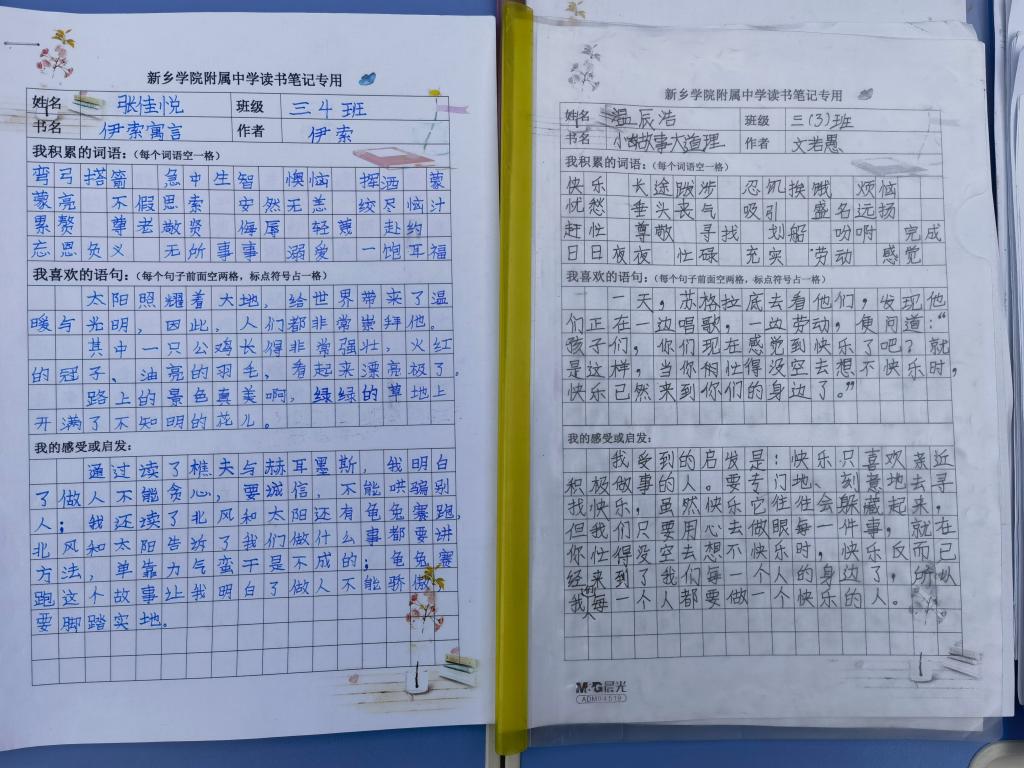 新乡学院附属中学读书笔记专用
姓名 张佳悦 班级 三4班
书名 伊索寓言 作者 伊索
我积累的词语：（每个词语空一格）
弯弓搭箭 急中生智 懊恼 挥洒 蒙
蒙亮 不假思索 安然无恙 绞尽脑汁
累赘 尊老敬贤 侮辱 轻蔑 赴约
忘恩负义 无所事事 溺爱 一饱耳福
我喜欢的语句：（每个句子前面空两格，标点符号占一格）
太阳照耀着大地，给世界带来了温
暖与光明，因此，人们都非常崇拜他。
其中一只公鸡长得非常强壮，火红
的冠子、油亮的羽毛，看起来漂亮极了。
路上的景色真美啊，绿绿的草地上
开满了不知明的花儿。
我的感受或启发：
通过读了樵夫与赫耳墨斯，我明白
了做人不能贪心，要诚信，不能哄骗别
人；我还读了北风和太阳还有龟兔赛跑，
北风和太阳告诉了我们做什么事都要讲
方法，单靠力气蛮干是不成的；龟兔赛
跑这个故事让我明白了做人不能骄傲，
要脚踏实地。
新乡学院附属中学读书笔记专用
姓名 温辰浩 班级 三（3）班
书名 小故事大道理 作者 文若愚
我积累的词语：（每个词语空一格）
快乐 长途跋涉 忍饥挨饿 烦恼
忧愁 垂头丧气 吸引 盛名远扬
赶忙 尊敬 寻找 划船 吩咐 完成
日日夜夜 忙碌 充实 劳动 感觉
我喜欢的语句：（每个句子前面空两格，标点符号占一格）
一天，苏格拉底去看他们，发现他
们正在一边唱歌，一边劳动，便问道：“
孩子们，你们现在感觉到快乐了吧？就
是这样，当你们忙得没空去想不快乐时，
快乐已然来到你们的身边了。”
我的感受或启发：
我受到的启发是：快乐只喜欢亲近
积极做事的人。要专门地、刻意地去寻
找快乐，虽然快乐它往往会躲藏起来，
但我们只要用心去做眼每一件事，就在
你忙得没空去想不快乐时，快乐反而已
经来到了我们每一个人的身边了，所以
我们每一个人都要做一个快乐的人。
M&G晨光